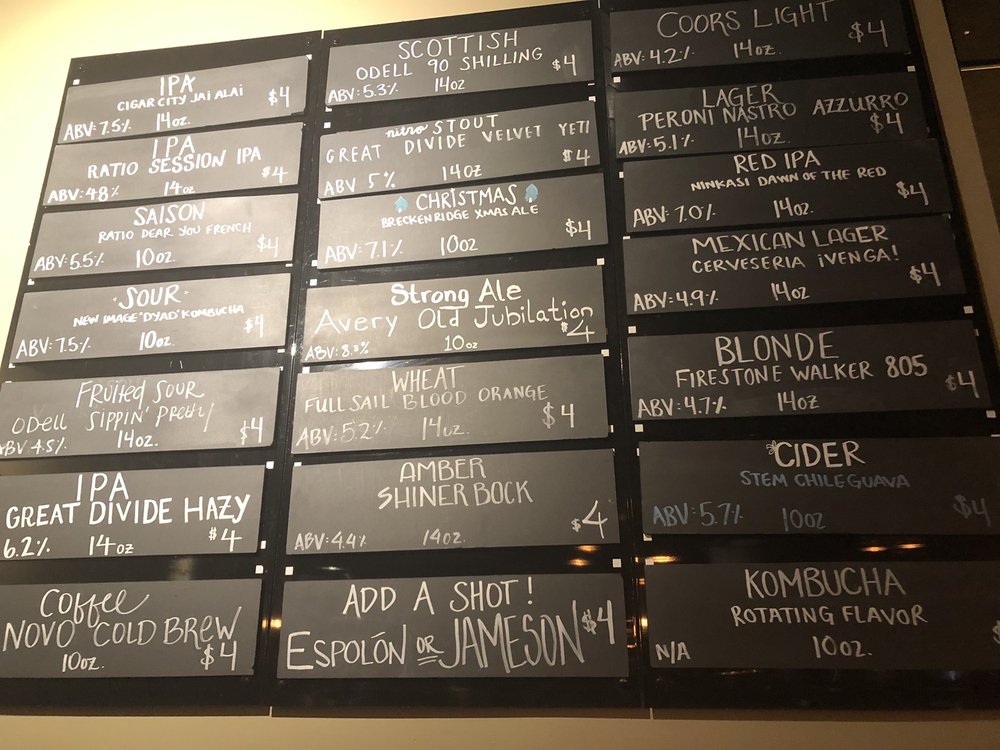 IPA
CIGAR CITY JAI ALAI
$4
ABV: 7.5% 14oz.
IPA
RATIO SESSION IPA
$4
ABV: 4.8% 14oz
SAISON
RATIO DEAR YOU FRENCH
$4
ABV: 5.5% 10oz.
SOUR
NEW IMAGE "DYAD" KOMBUCHA
$4
ABV: 7.5% 10oz.
FRUITED SOUR
ODELL SIPPIN' PRETTY
$4
ABV 4.5% 14oz.
IPA
GREAT DIVIDE HAZY
6.2% 14oz $4
COFFEE
NOVO COLD BREW
10oz. $4
SCOTTISH
ODELL 90 SHILLING
$4
ABV: 5.3% 14oz
nitro STOUT
GREAT DIVIDE VELVET YETI
$4
ABV 5% 14oz
CHRISTMAS
BRECKENRIDGE XMAS ALE
$4
ABV: 7.1% 10oz
Strong Ale
Avery Old Jubilation
$4
ABV: 8.3% 10oz
WHEAT
FULL SAIL BLOOD ORANGE
$4
ABV: 5.2% 14oz.
AMBER
SHINER BOCK
$4
ABV: 4.4% 14oz.
ADD A SHOT!
ESPOLÓN OR JAMESON $4
COORS LIGHT
$4
ABV: 4.2% 14oz.
LAGER
PERONI NASTRO AZZURRO
$4
ABV: 5.1% 14oz.
RED IPA
NINKASI DAWN OF THE RED
$4
ABV: 7.0% 14oz.
MEXICAN LAGER
CERVESERIA ¡VENGA!
$4
ABV: 4.9% 14oz
BLONDE
FIRESTONE WALKER 805
$4
ABV: 4.7% 14oz
CIDER
STEM CHILE GUAVA
$4
ABV: 5.7% 10oz
KOMBUCHA
ROTATING FLAVOR
N/A 10oz.